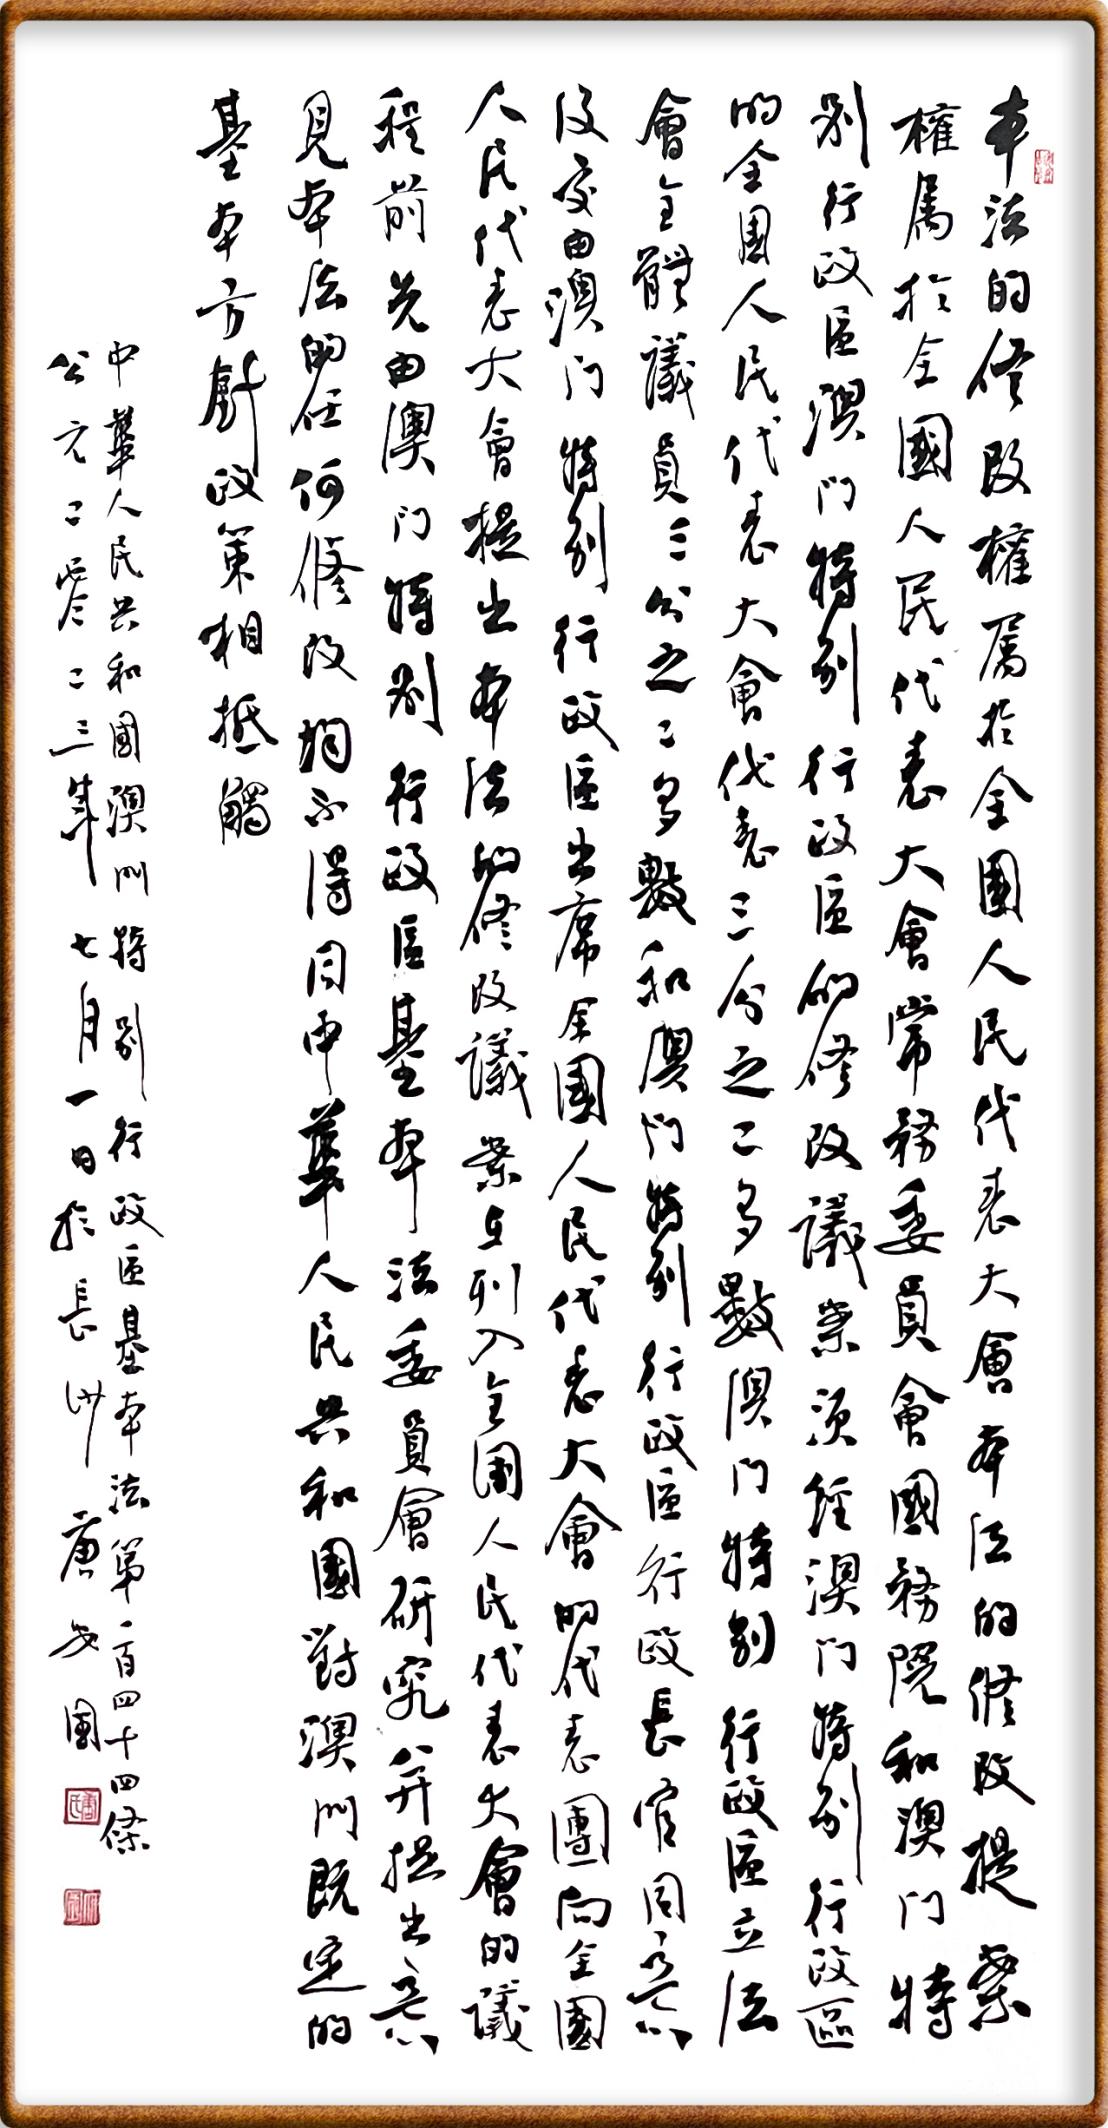 本法的修改權屬於全國人民代表大會本法的修改提案
權屬於全國人民代表大會常務委員會國務院和澳门特
別行政區澳门特別行政區的修改議案須經澳门特別行政區
的全國人民代表大會代表三分之二多數澳门特别行政區立法
會全體議員三分之二多數和澳门特别行政區行政長官同意
後交由澳门特别行政區出席全國人民代表大會的代表團向全國
人民代表大會提出本法的修改議案在列入全國人民代表大會的議
程前先由澳门特别行政區基本法委員會研究并提出意
見本法的任何修改均不得同中華人民共和國對澳门既定的
基本方針政策相抵觸
中華人民共和國澳门特别行政區基本法第一百四十四條
公元二零二三年七月一日於長沙 唐安國